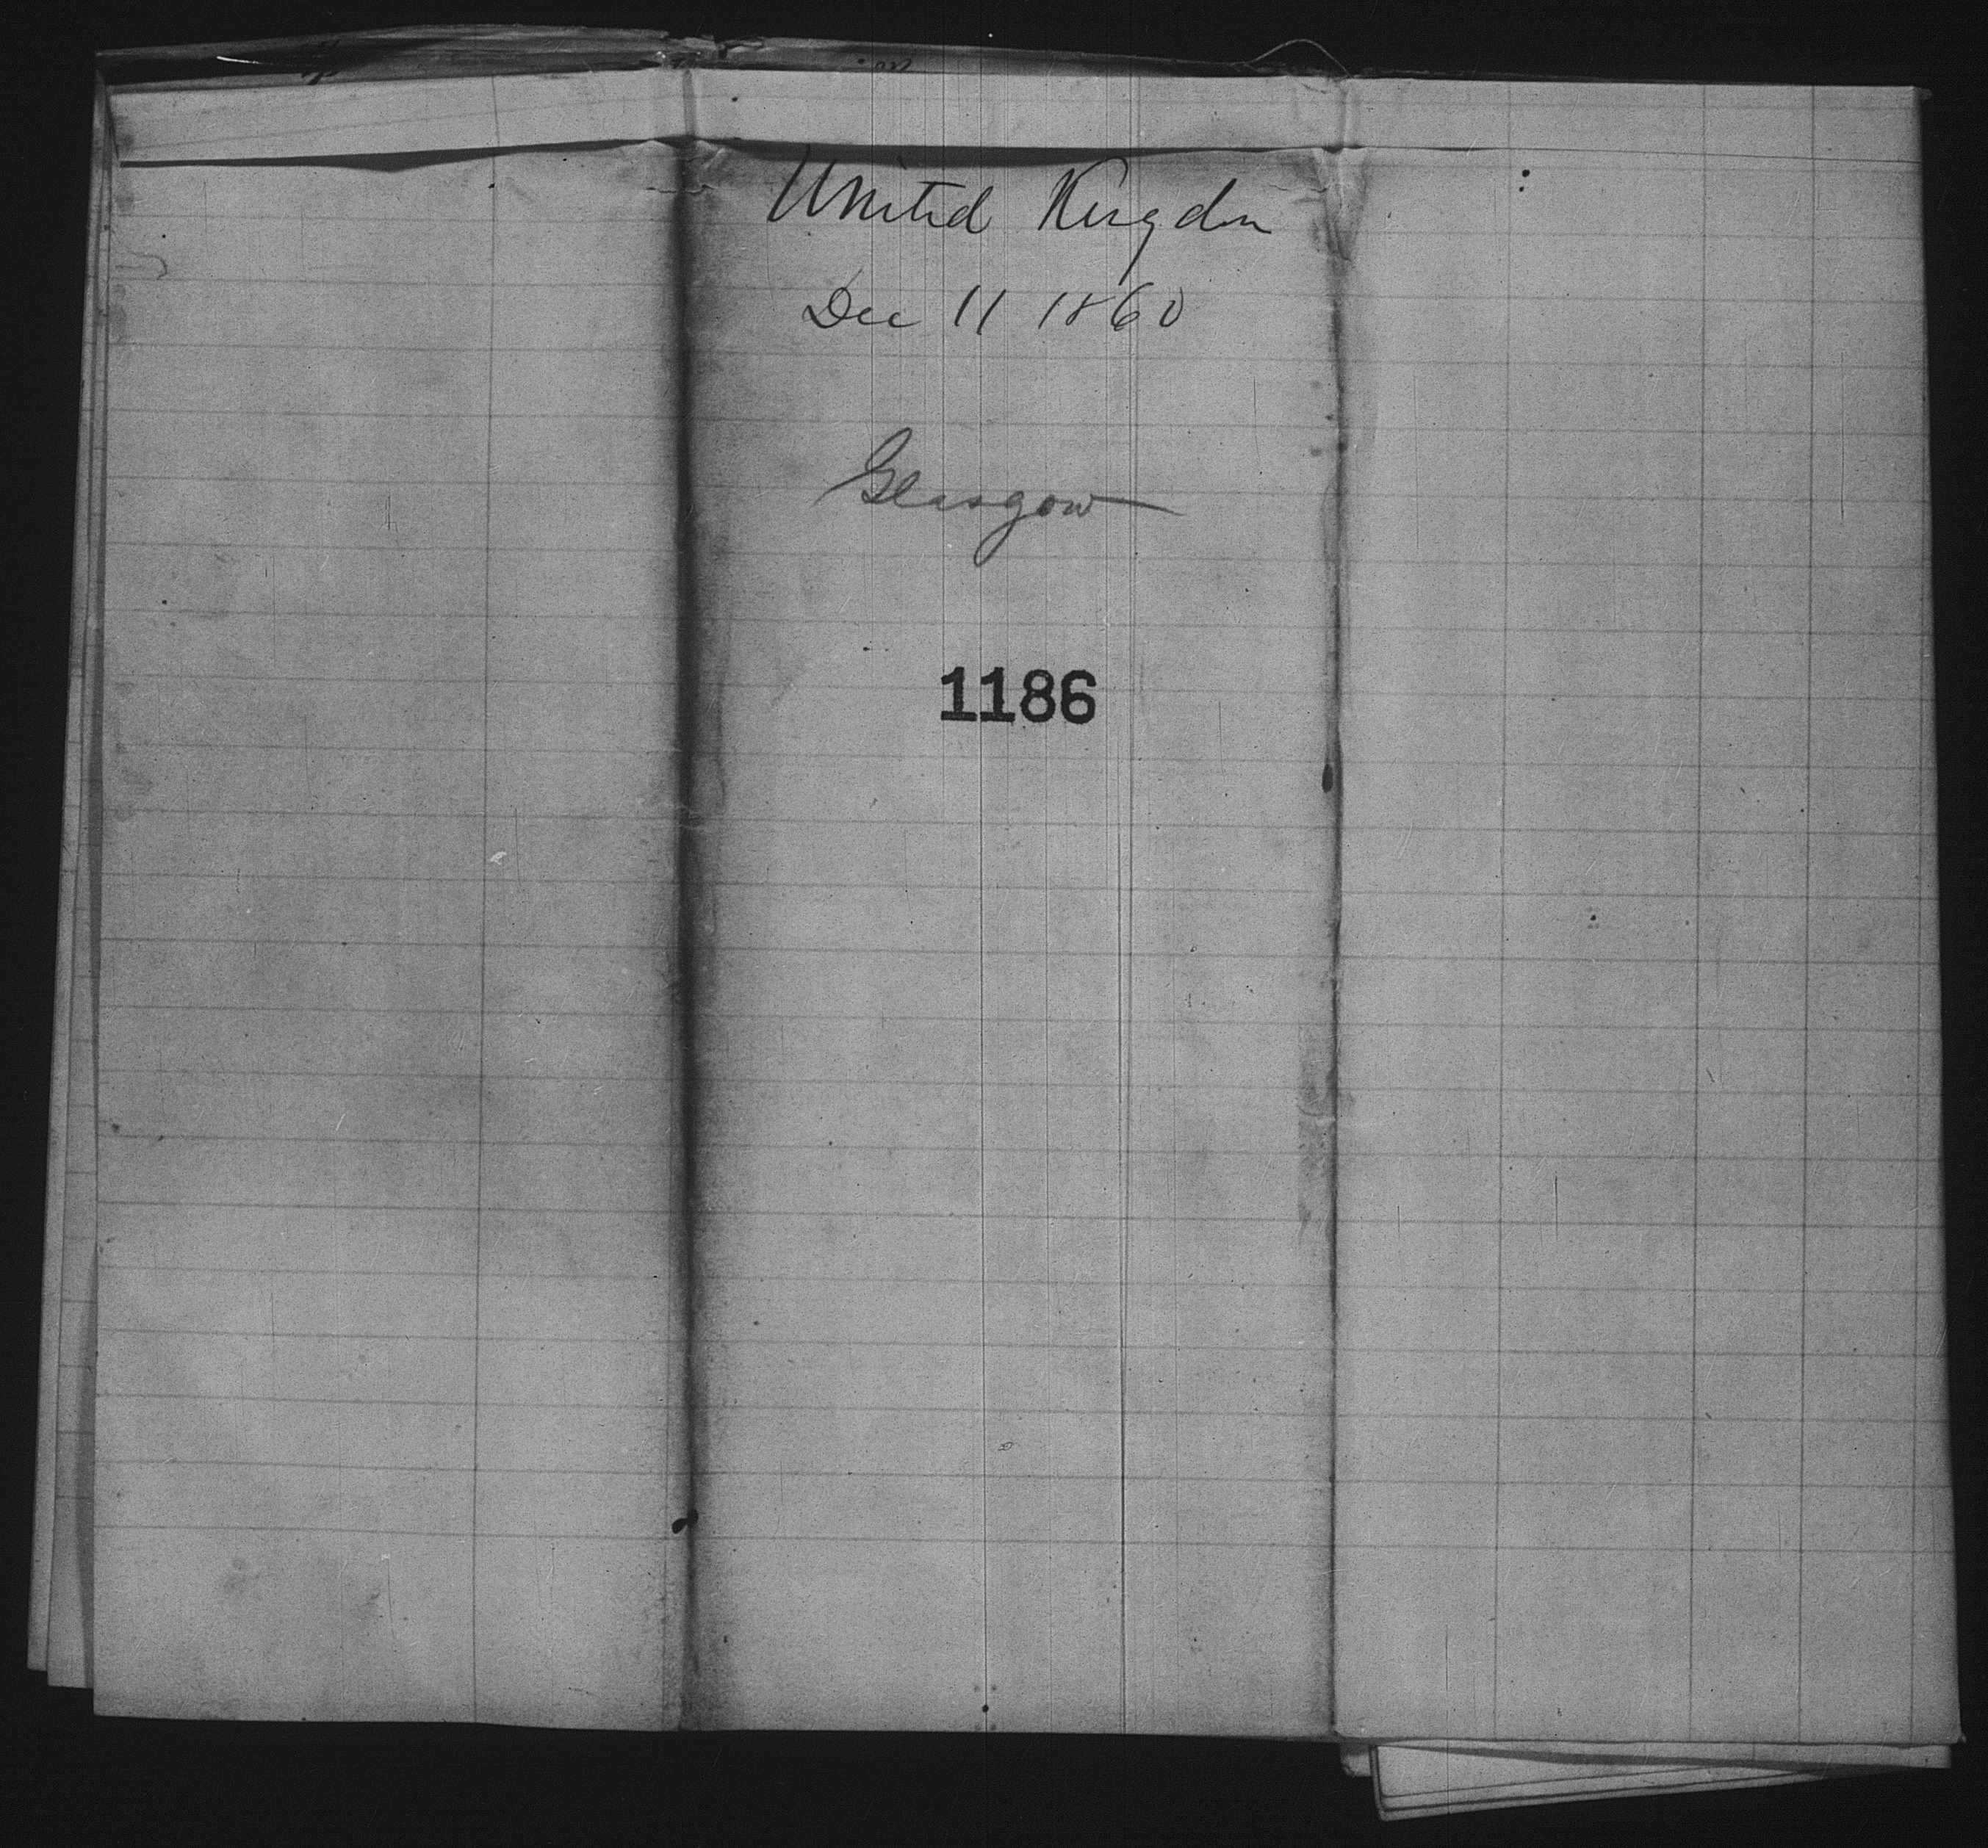 United Kingdom
Dec 11 1860
Glasgow
1186